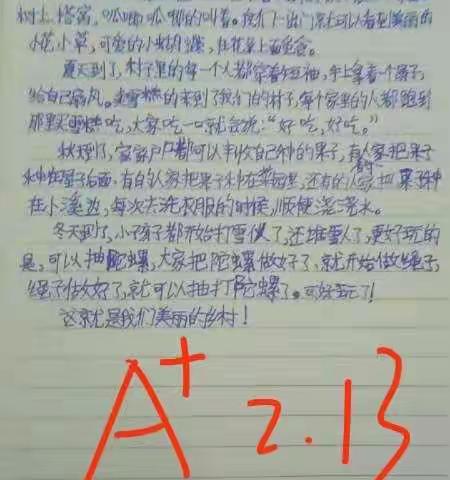 树上搭窝，呱呱呱呱的叫着。我们一出门就可以看到美丽的
小花小草，可爱的小蝴蝶，在花朵上面觅食。
夏天到了，村子里的每一个人都穿着短袖，手上拿着个扇子，
给自己扇风。卖雪糕的来到了我们的村子，每个家里的人都跑到
那里买雪糕吃，大家吃一口就会说：“好吃，好吃。”
秋天到了，家家户户都可以丰收自己种的果子，有的人家把果子
种在屋子后面，有的人家把果子种在菜园里，还有的人家把果子种
在小溪边，每次去洗衣服的时候，顺便浇浇水。
冬天到了，小孩子都开始打雪仗了，还堆雪人了，更好玩的
是，可以抽陀螺，大家把陀螺做好了，就开始做绳子，
绳子做好了，就可以抽打陀螺了。可好玩了！
这就是我们美丽的乡村！
A+ 2.13